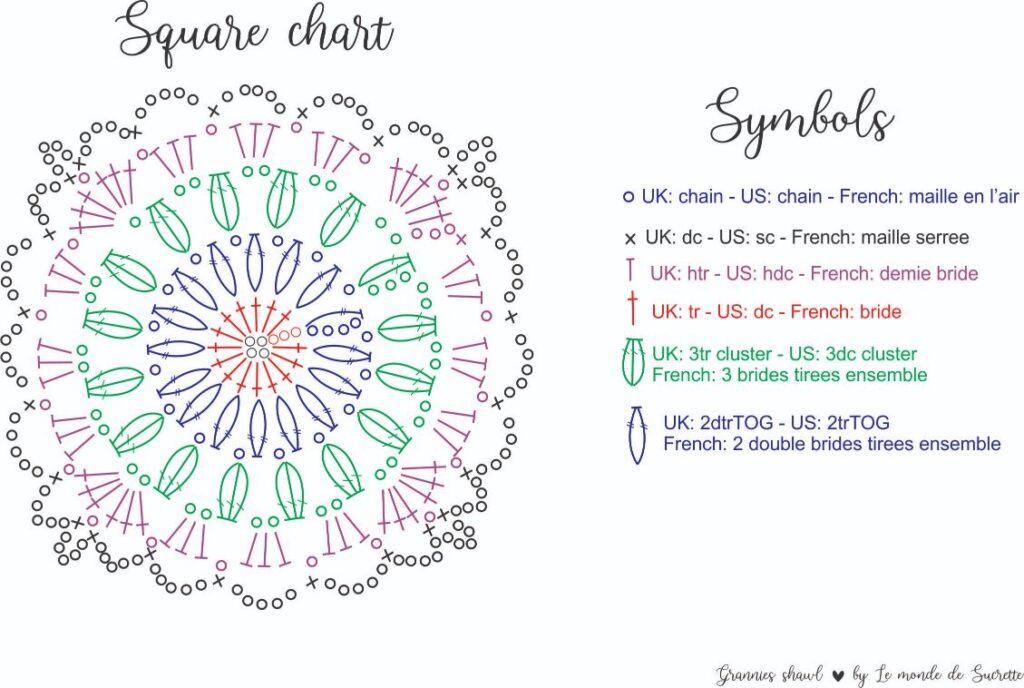 Square chart
Symbols
UK: chain - US: chain - French: maille en l'air
UK: dc - US: sc - French: maille serree
UK: htr - US: hdc - French: demie bride
UK: tr - US: dc - French: bride
UK: 3tr cluster - US: 3dc cluster
French: 3 brides tirees ensemble
UK: 2dtrTOG - US: 2trTOG
French: 2 double brides tirees ensemble
Grannies shawl ♥ by Le monde de Sucrette